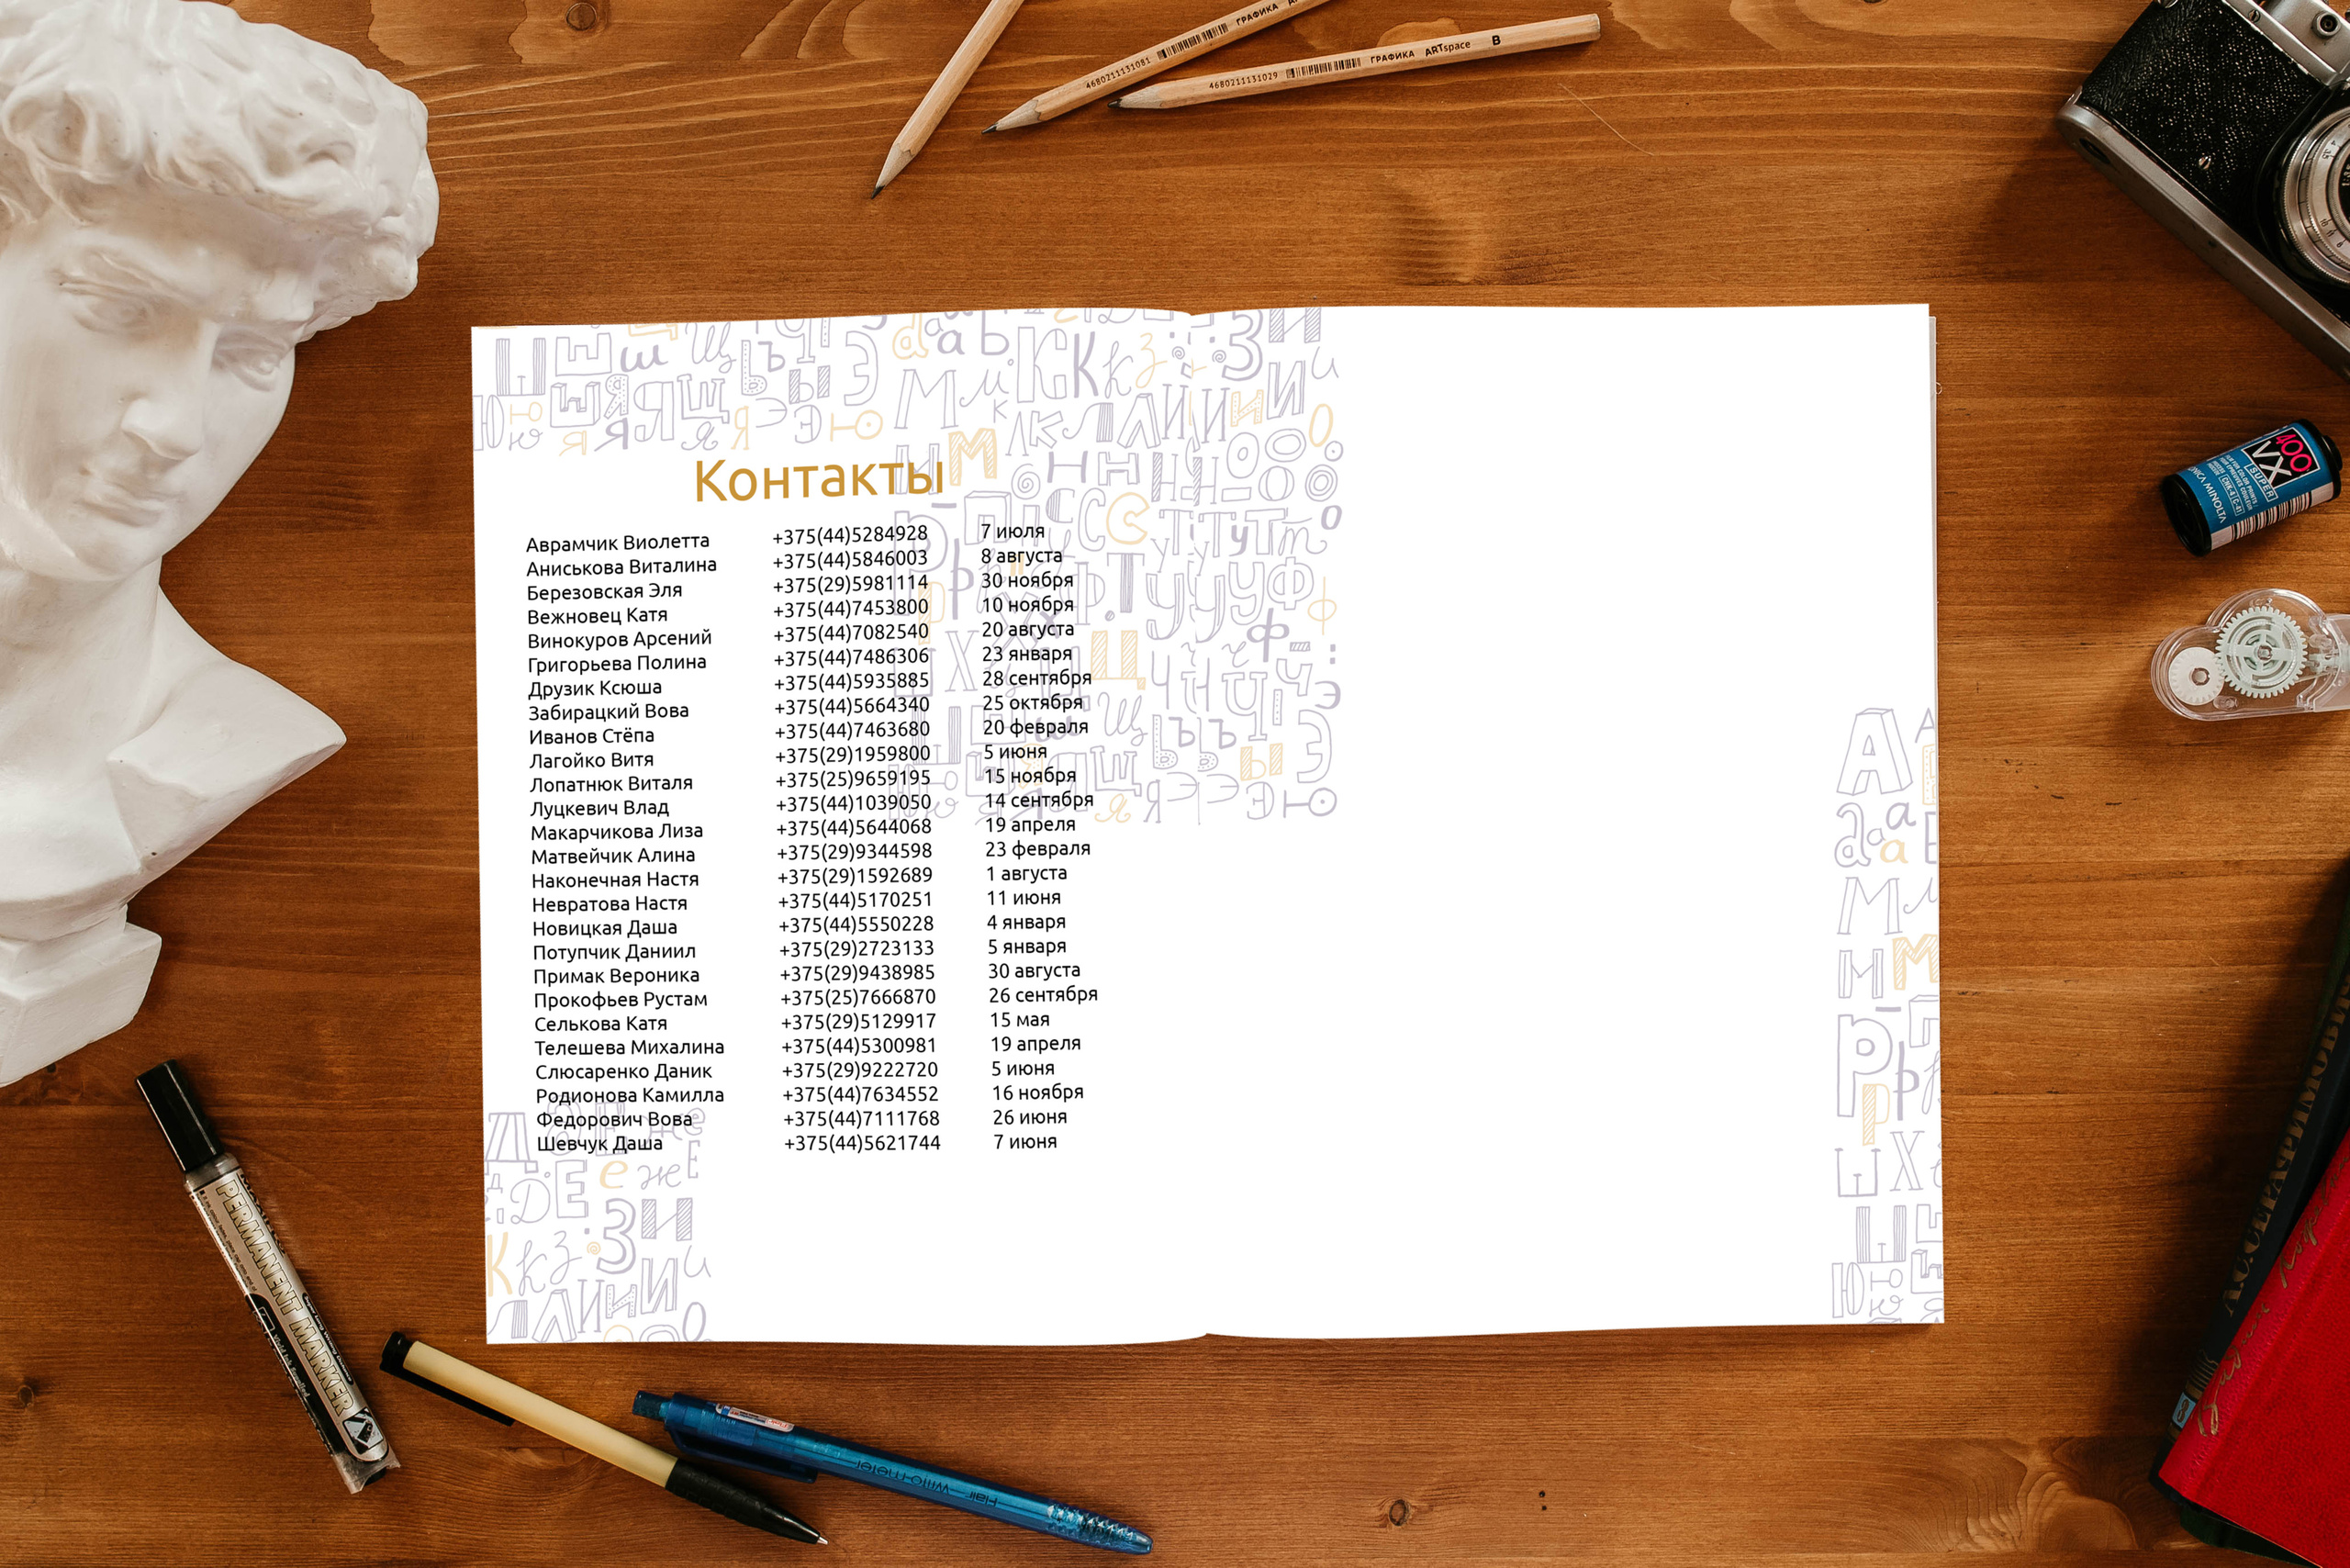 ГРАФИКА
4680211131081
4680211131029 ГРАФИКА ARTspace B
400
VX
SUPER
KONICA MINOLTA
Контакты
Аврамчик Виолетта +375(44)5284928 7 июля
Аниськова Виталина +375(44)5846003 8 августа
Березовская Эля +375(29)5981114 30 ноября
Вежновец Катя +375(44)7453800 10 ноября
Винокуров Арсений +375(44)7082540 20 августа
Григорьева Полина +375(44)7486306 23 января
Друзик Ксюша +375(44)5935885 28 сентября
Забирацкий Вова +375(44)5664340 25 октября
Иванов Стёпа +375(44)7463680 20 февраля
Лагойко Витя +375(29)1959800 5 июня
Лопатнюк Виталя +375(25)9659195 15 ноября
Луцкевич Влад +375(44)1039050 14 сентября
Макарчикова Лиза +375(44)5644068 19 апреля
Матвейчик Алина +375(29)9344598 23 февраля
Наконечная Настя +375(29)1592689 1 августа
Невратова Настя +375(44)5170251 11 июня
Новицкая Даша +375(44)5550228 4 января
Потупчик Даниил +375(29)2723133 5 января
Примак Вероника +375(29)9438985 30 августа
Прокофьев Рустам +375(25)7666870 26 сентября
Селькова Катя +375(29)5129917 15 мая
Телешева Михалина +375(44)5300981 19 апреля
Слюсаренко Даник +375(29)9222720 5 июня
Родионова Камилла +375(44)7634552 16 ноября
Федорович Вова +375(44)7111768 26 июня
Шевчук Даша +375(44)5621744 7 июня
PERMANENT MARKER
Flair Writo-meter